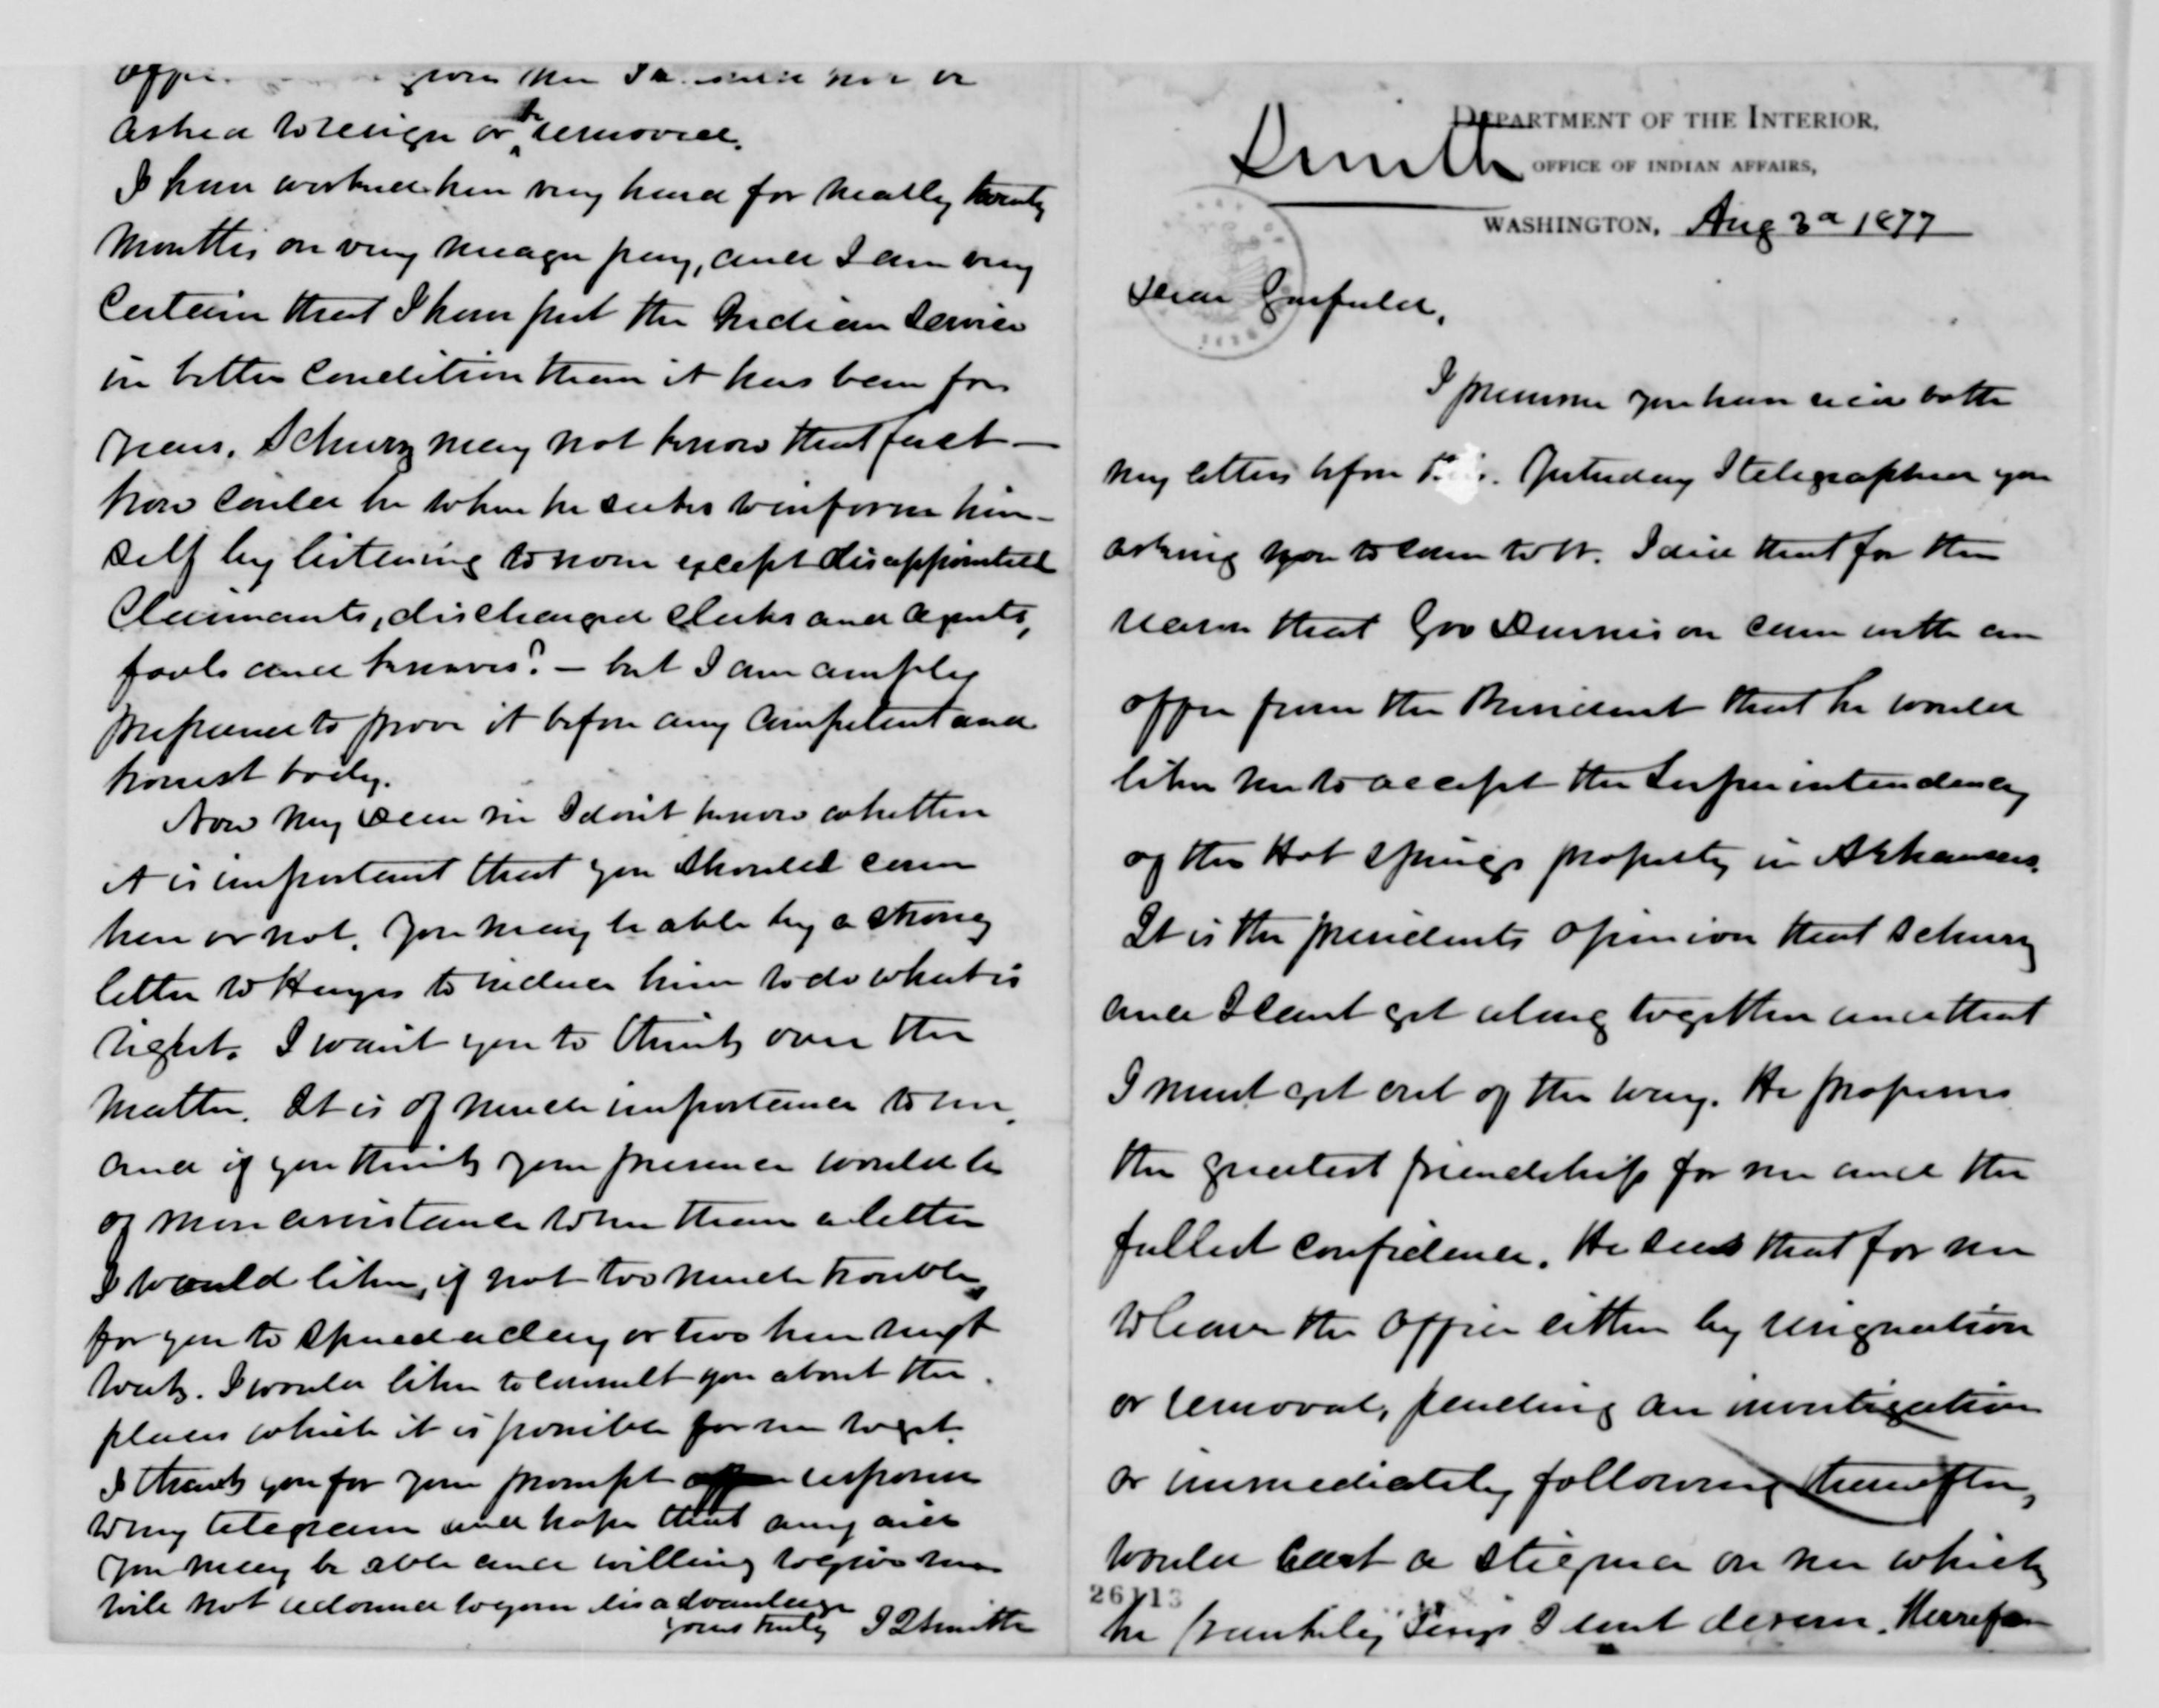 DEPARTMENT OF THE INTERIOR,
Smith
OFFICE OF INDIAN AFFAIRS,
WASHINGTON, Aug 3d 1877
Dear Garfield,
I presume you have rec'd both
my letters before this. Yesterday I telegraphed you
asking you to come to W. I did that for the
reason that Gov Dennison came with an
offer from the President that he would
like me to accept the Superintendency
of the Hot Springs property in Arkansas.
It is the presidents opinion that Schurz
and I cant get along together and that
I must get out of the way. He professes
the greatest friendship for me and the
fullest confidence. He sees that for me
to leave the office either by resignation
or removal, pending an investigation
or immediately following thereafter,
would cast a stigma on me which
26113
he frankly says I dont deserve. Therefore
asked to resign or be removed.
I have worked here very hard for nearly twenty
months on very meagre pay, and I am very
certain that I have put the Indian Service
in better condition than it has been for
years. Schurz may not know that fact —
how could he when he seeks to inform him-
self by listening to none except disappointed
Claimants, discharged clerks and agents,
fools and knaves? — but I am amply
prepared to prove it before any competent and
honest body.
Now my dear sir I don't know whether
it is important that you should come
here or not. You may be able by a strong
letter to Hayes to induce him to do what is
right. I want you to think over the
matter. It is of much importance to me,
and if you think your presence would be
of more assistance to me than a letter
I would like, if not too much trouble,
for you to spend a day or two here next
week. I would like to consult you about the
places which it is possible for me to get.
I thank you for your prompt response
to my telegram and hope that any aid
you may be able and willing to give me
will not redound to your disadvantage
Yours truly J Q Smith